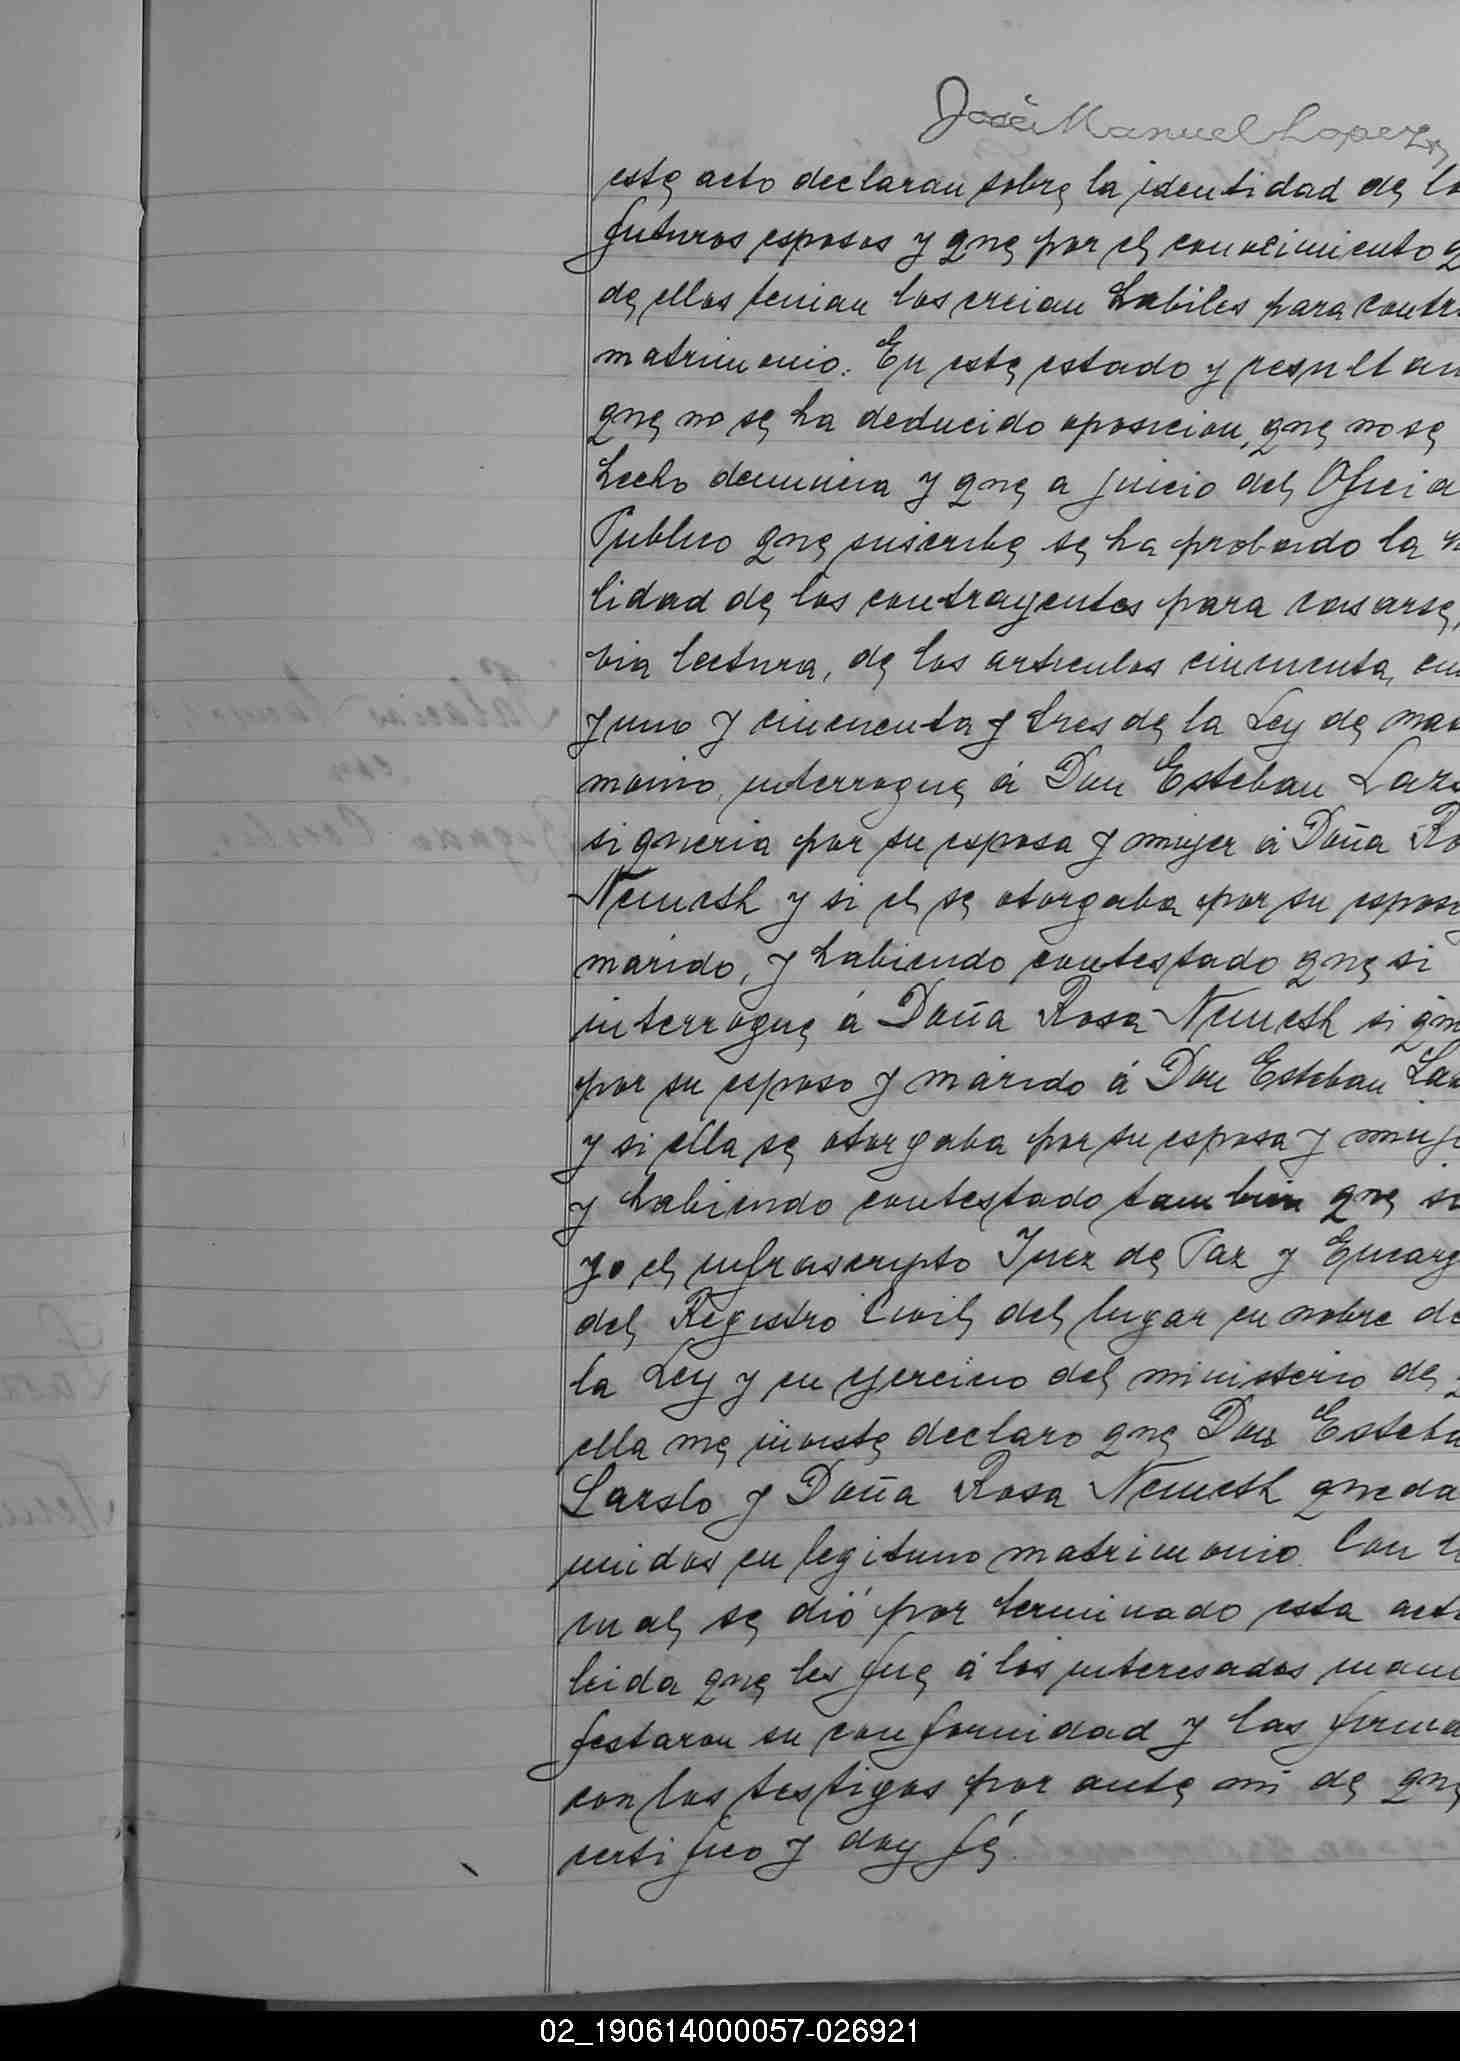 José Manuel Lopez
este acto declaran sobre la identidad de lo
futuros esposos y que por el conocimiento q
de ellos tenian los creian habiles para contr
matrimonio. En este estado y resultan
que no se ha deducido oposicion, que no se
hecho denuncia y que a juicio del Oficia
Publico que suscribe se ha probado la
lidad de los contrayentes para casarse,
via lectura, de los articulos cincuenta, cin
y uno y cincuenta y tres de la Ley de ma
monio, interrogue á Don Esteban Laz
si queria por su esposa y mujer á Doña Ro
Nemeth y si el se otorgaba por su espos
márido, y habiendo contestado que si
interrogue á Doña Rosa Nemeth si qu
por su esposo y márido á Don Esteban La
y si ella se otorgaba por su esposa y muje
y habiendo contestado tambien que si
yo el infrascripto Juez de Paz y Encarg
del Registro Civil del lugar en nobre de
la Ley y en ejercicio del ministerio de
ella me inviste declaro que Don Esteba
Larslo y Doña Rosa Nemeth queda
unidos en legitimo matrimonio. Con l
cual se dió por terminado esta act
leida que les fue á los interesados mani
festaron su conformidad y las firma
con los testigos por ante mi de que
certifico y doy fé.
02_190614000057-026921